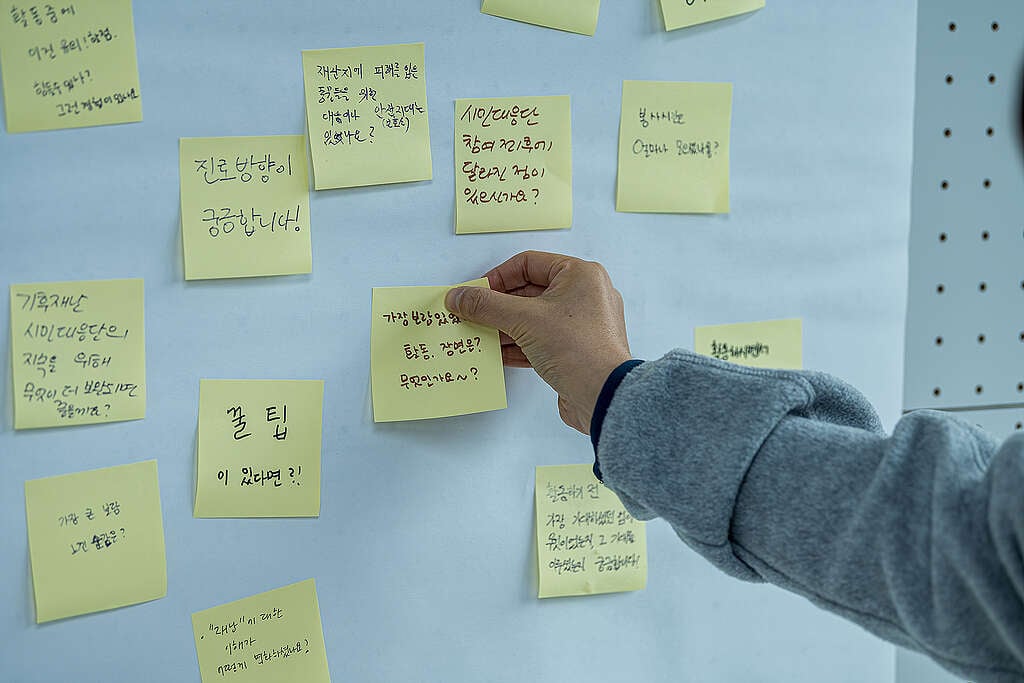 활동중에
이건
힘들수있나?
그런 경험이 있나요
재난지에 피해를 입은
동물들을 위한
대피하나 안전지대는
있었나요?
시민대응단
참여 전후에
달라진 점이
있으신가요?
봉사시간
얼마나 모으셨나요?
진로방향이
궁금합니다!
가장 보람있었
활동, 장면은?
무엇인가요~?
기후재난
시민대응단의
지속을 위해
무엇이 더 보완되면
좋을까요?
꿀 팁
이 있다면?!
활동하시면서
가장 큰 보람
느낀 순간은?
활동하기 전
가장 기대하셨던 점이
무엇이었는지, 그 기대를
이루셨는지 궁금합니다!
"재난"에 대한
이해가
어떻게 변화하셨나요?